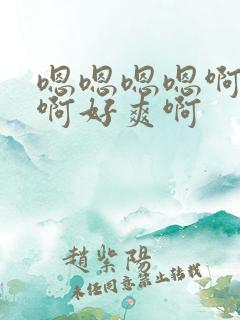 嗯嗯嗯嗯啊
啊好爽啊
趙紫陽
未经同意禁止转载